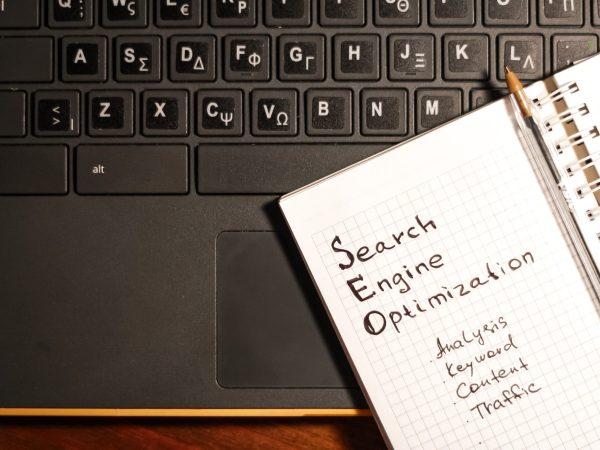 Q ; W ς E € R P Θ O Π
A S Σ D Δ F Φ G Γ H J Ξ K L Λ
< > | Z X C Ψ V Ω B N M
alt
Search
Engine
Optimization
. Analysis
. Keyword
. Content
. Traffic